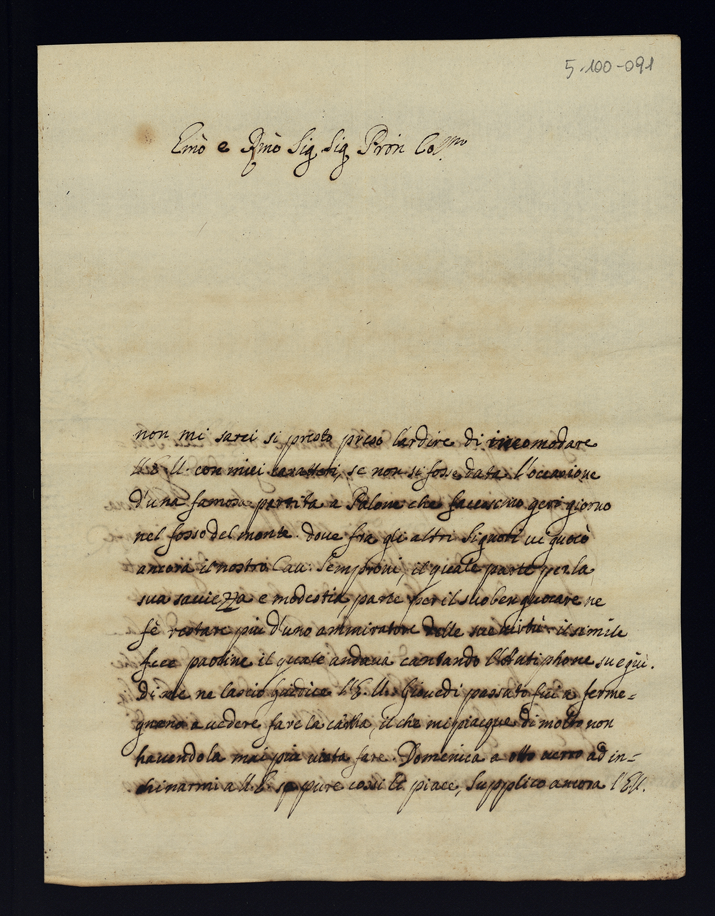 5-100-091
Emo e Rmo Sig Sig Pron Co.mo
non mi sarei si presto preso l'ardire di incomodare
con miei caratteri, se non si fosse data l'occasione
d'una famosa partita a Palone che facessimo geri giorno
nel fosso del monte dove fra gli altri Signori vi giuocò
ancora il nostro Cau: Semproni, il quale parte per la
sua saviezza e modestia, parte per il suo ben giuocare ne
fè restare più d'uno ammiratore delle sue virtù il simile
fece paoline il quale andava cantando
Di me ne lascio giudice l'E. V. Giovedì passato fui a ferme=
gnano a vedere fare la carta, il che mi piacque di molto non
havendola mai più vista fare. Domenica a otto verrò ad in=
chinarmi a V. E. se pure cossi le piace, Supplico ancora l'EV.